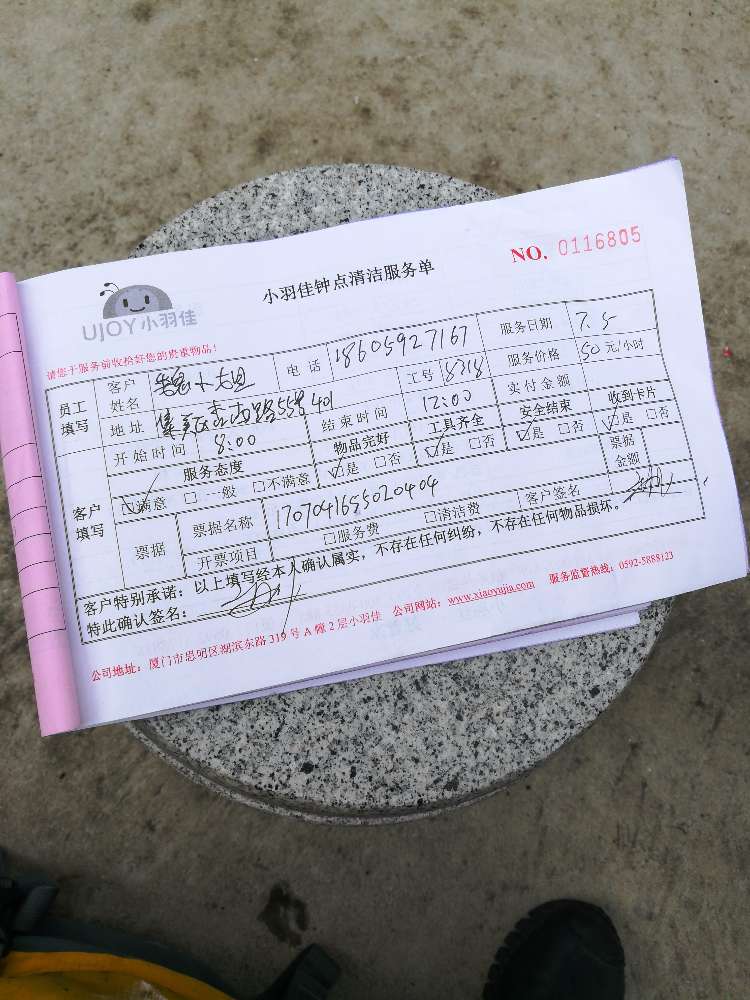 NO. 0116805
小羽佳钟点清洁服务单
UJOY小羽佳
请您于服务前收拾好您的贵重物品！
员工填写 客户姓名 魏小姐 电话 18605927167 服务日期 7.5
地址 集美区 路55号401 工号 8318 服务价格 50元/小时
开始时间 8:00 结束时间 12:00 实付金额
客户填写 服务态度 物品完好 工具齐全 安全结束 收到卡片
☑满意 □一般 □不满意 ☑是 □否 ☑是 □否 ☑是 □否 ☑是 □否
票据 票据名称 1707041655020404 票据金额
开票项目 □服务费 □清洁费 客户签名
客户特别承诺：以上填写经本人确认属实，不存在任何纠纷，不存在任何物品损坏。
特此确认签名：
公司地址：厦门市思明区湖滨东路319号A幢2层小羽佳 公司网站：www.xiaoyujia.com 服务监督热线：0592-5888123